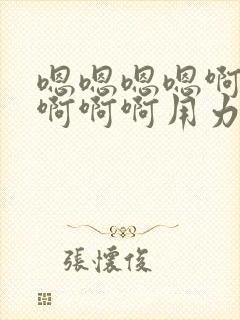 嗯嗯嗯嗯啊
啊啊啊用力
張懷俊